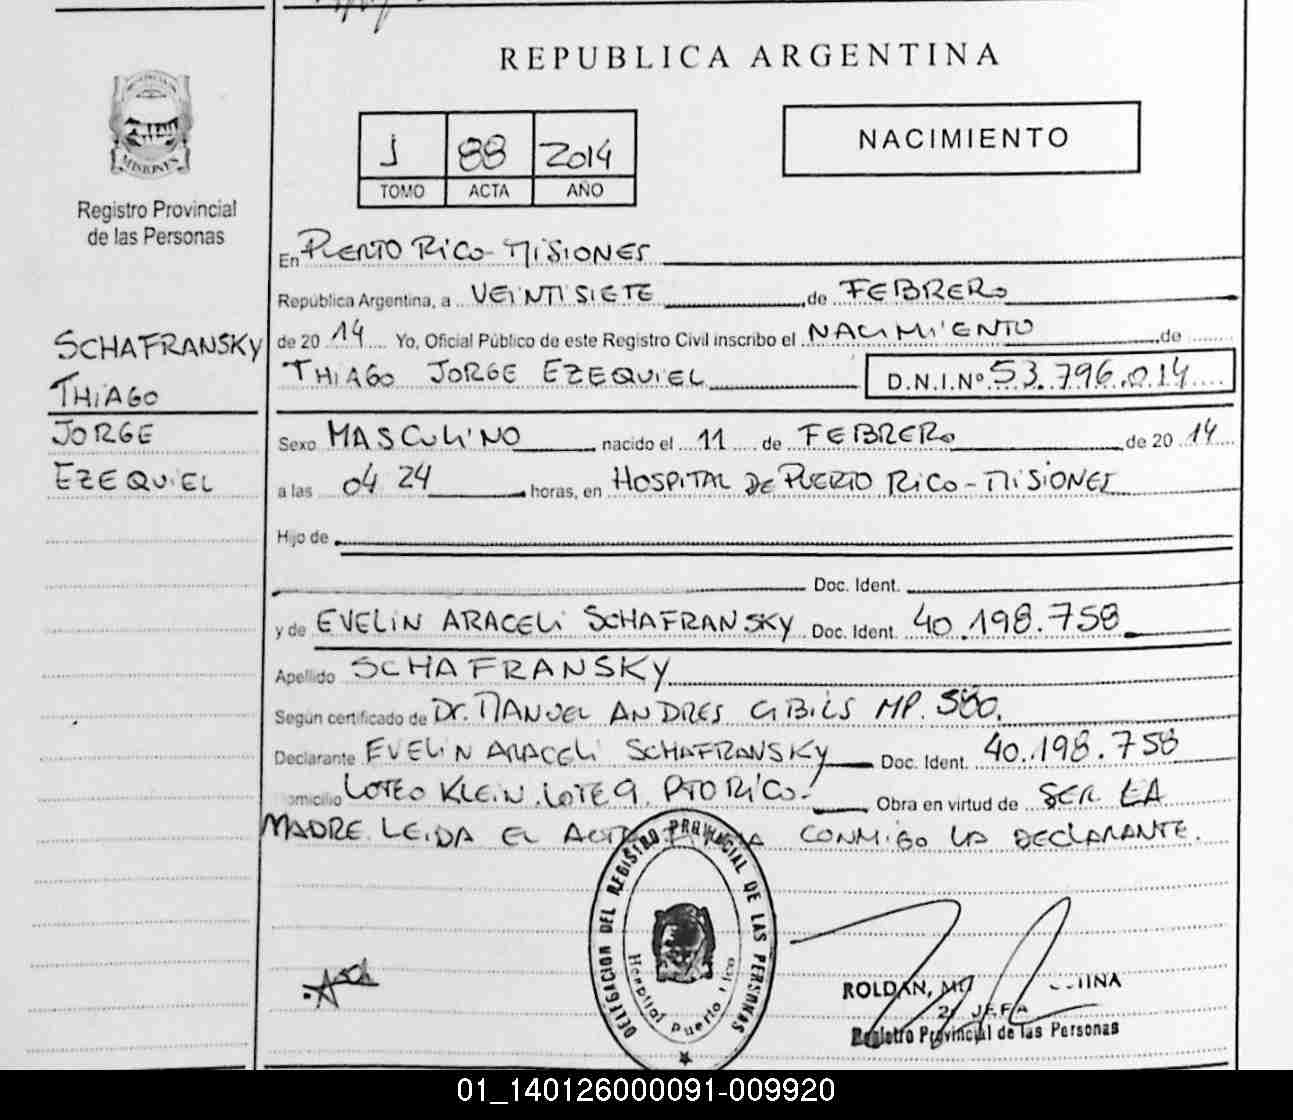 REPUBLICA ARGENTINA
MISIONES
Registro Provincial
de las Personas
J 88 2014
TOMO ACTA AÑO
NACIMIENTO
SCHAFRANSKY
THIAGO
JORGE
EZEQUIEL
En PUERTO RICO - MISIONES
República Argentina, a VEINTISIETE de FEBRERO
de 20 14 Yo, Oficial Público de este Registro Civil inscribo el NACIMIENTO de
THIAGO JORGE EZEQUIEL D.N.I.Nº 53.796.014
Sexo MASCULINO nacido el 11 de FEBRERO de 20 14
a las 04 24 horas, en HOSPITAL DE PUERTO RICO - MISIONES
Hijo de
Doc. Ident.
y de EVELIN ARACELI SCHAFRANSKY Doc. Ident. 40.198.758
Apellido SCHAFRANSKY
Según certificado de Dr. MANUEL ANDRES GIBILS MP. 580.
Declarante EVELIN ARACELI SCHAFRANSKY Doc. Ident. 40.198.758
omicilio LOTEO KLEIN LOTE 9. PTO RICO. Obra en virtud de SER LA
MADRE LEIDA EL ACTA CONMIGO LA DECLARANTE.
DELEGACION DEL REGISTRO PROVINCIAL DE LAS PERSONAS
Hospital Puerto Rico
ROLDAN,
JEFA
Registro Provincial de las Personas
01_140126000091-009920